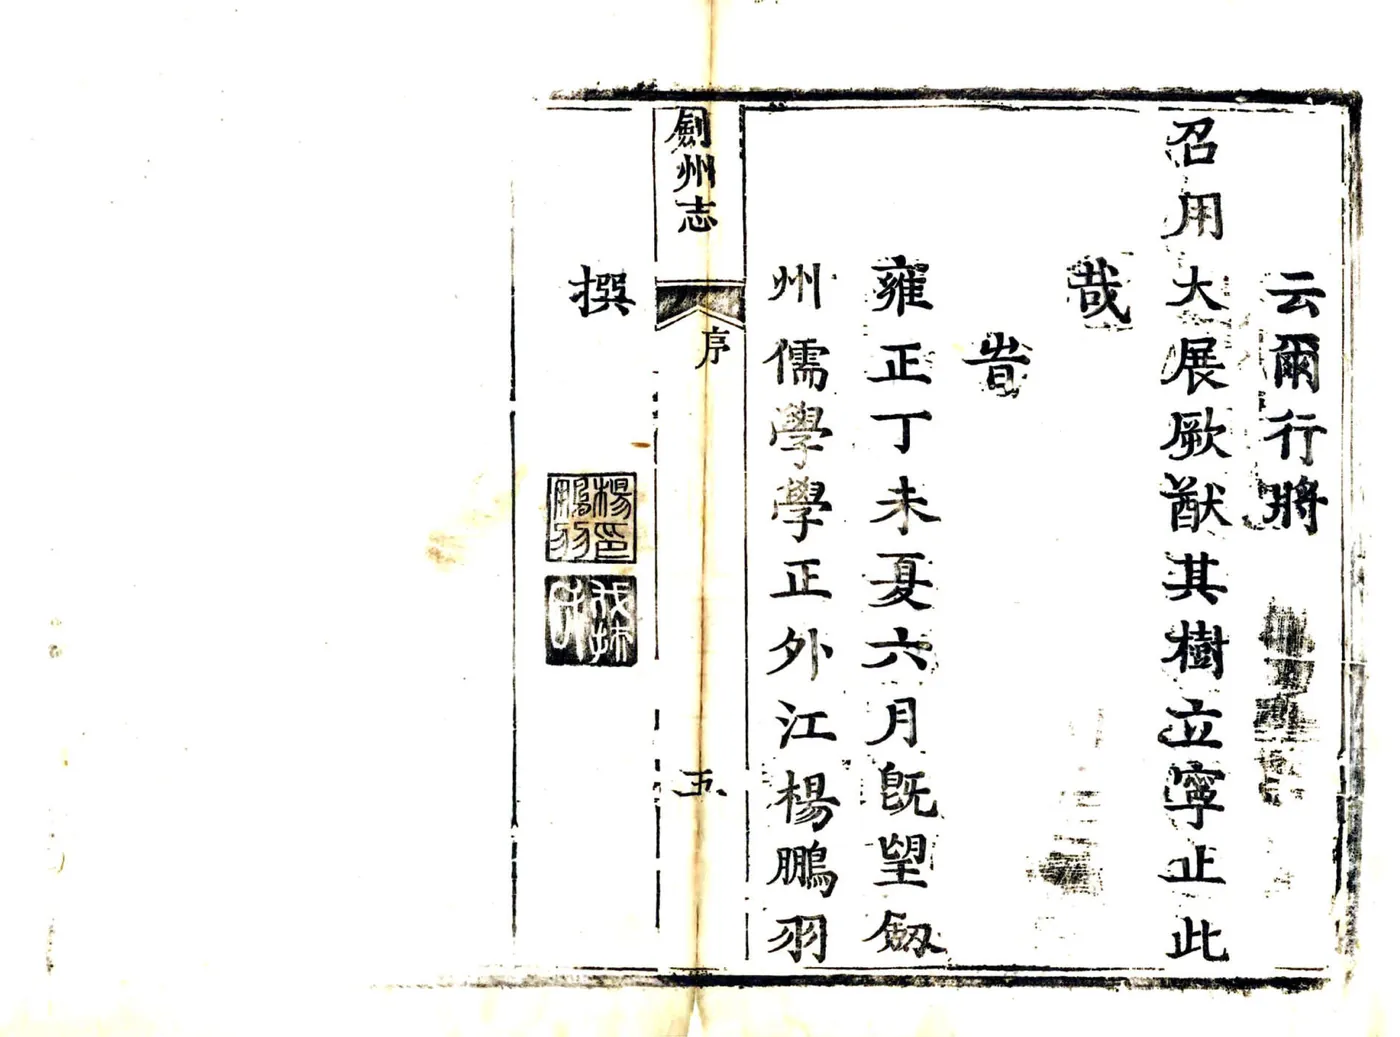 云爾行將
召用大展厥猷其樹立寧止此
哉
旹
雍正丁未夏六月旣望劔
州儒學學正外江楊鵬羽
劍州志
序
五
撰
楊印鵬羽